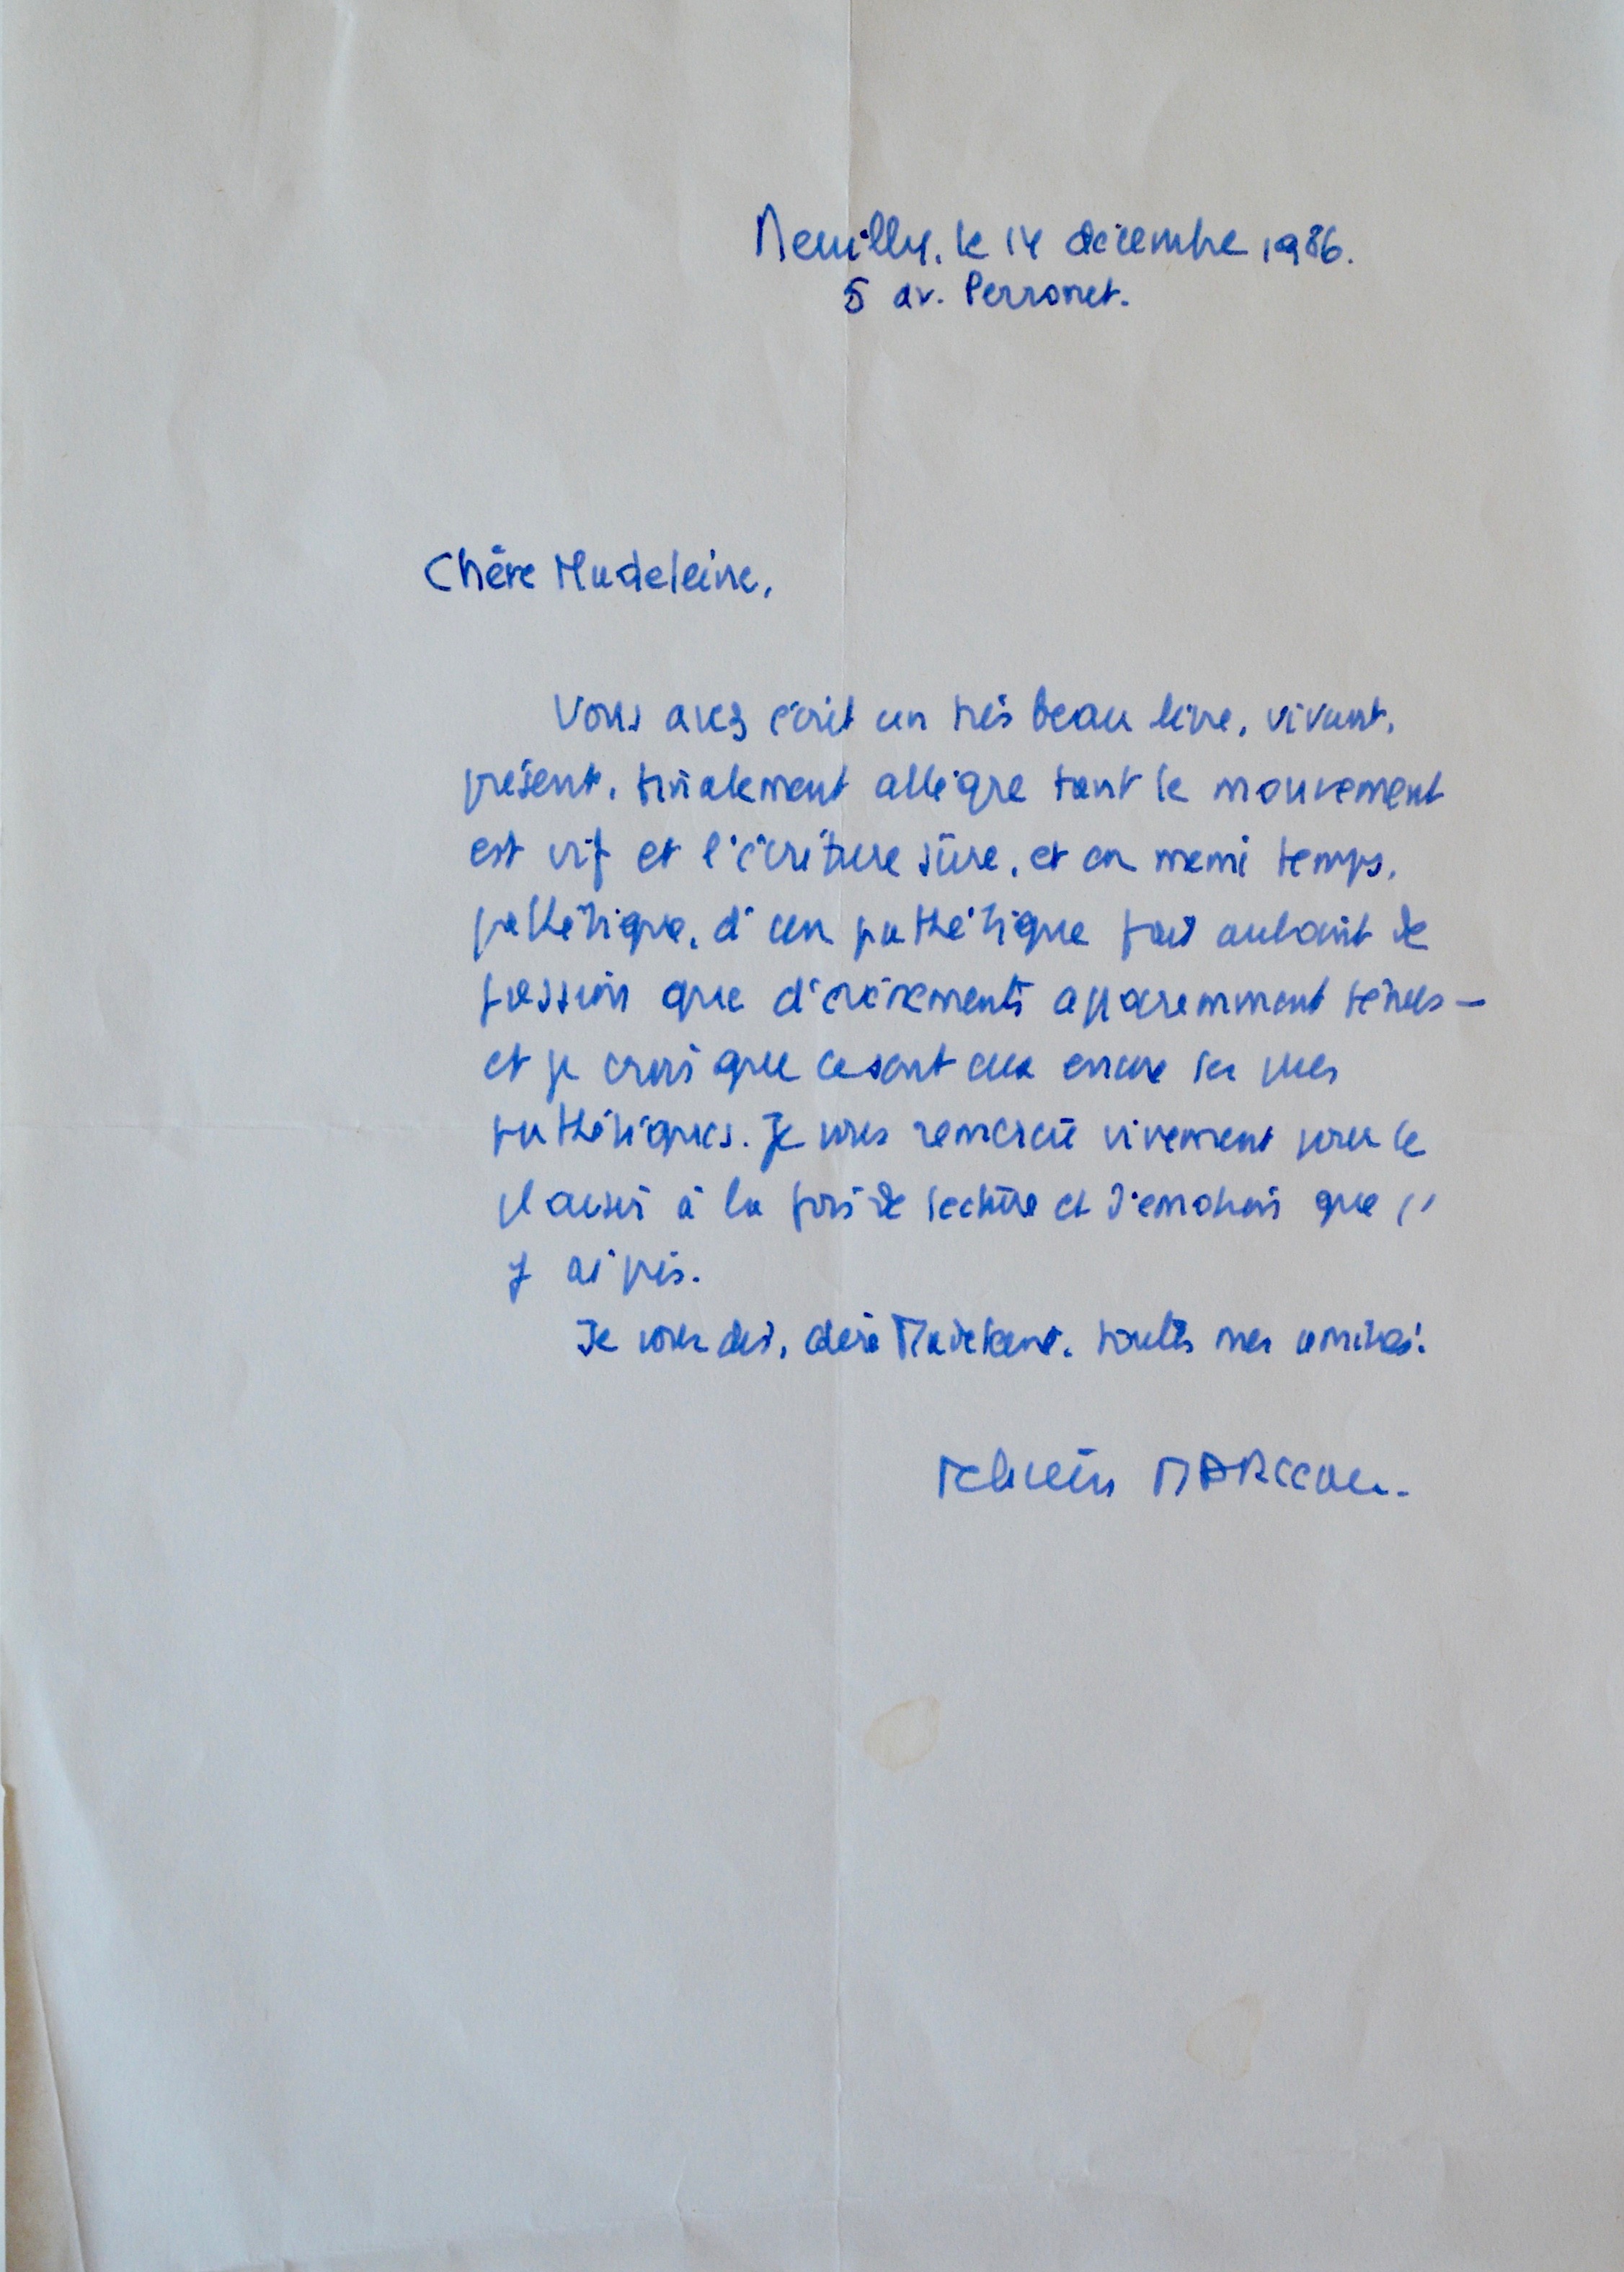 Neuilly, le 14 décembre 1986.
5 av. Perronet.
Chère Madeleine,
Vous avez écrit un très beau livre, vivant,
présent, finalement allègre tant le mouvement
est vif et l'écriture sûre, et en même temps,
pathétique, d'un pathétique fait autant de
passion que d'événements apparemment ténus –
et je crois que ce sont eux encore les plus
pathétiques. Je vous remercie vivement pour le
plaisir à la fois de lecture et d'émotions que j'
y ai pris.
Je vous dis, chère Madeleine, toutes mes amitiés.